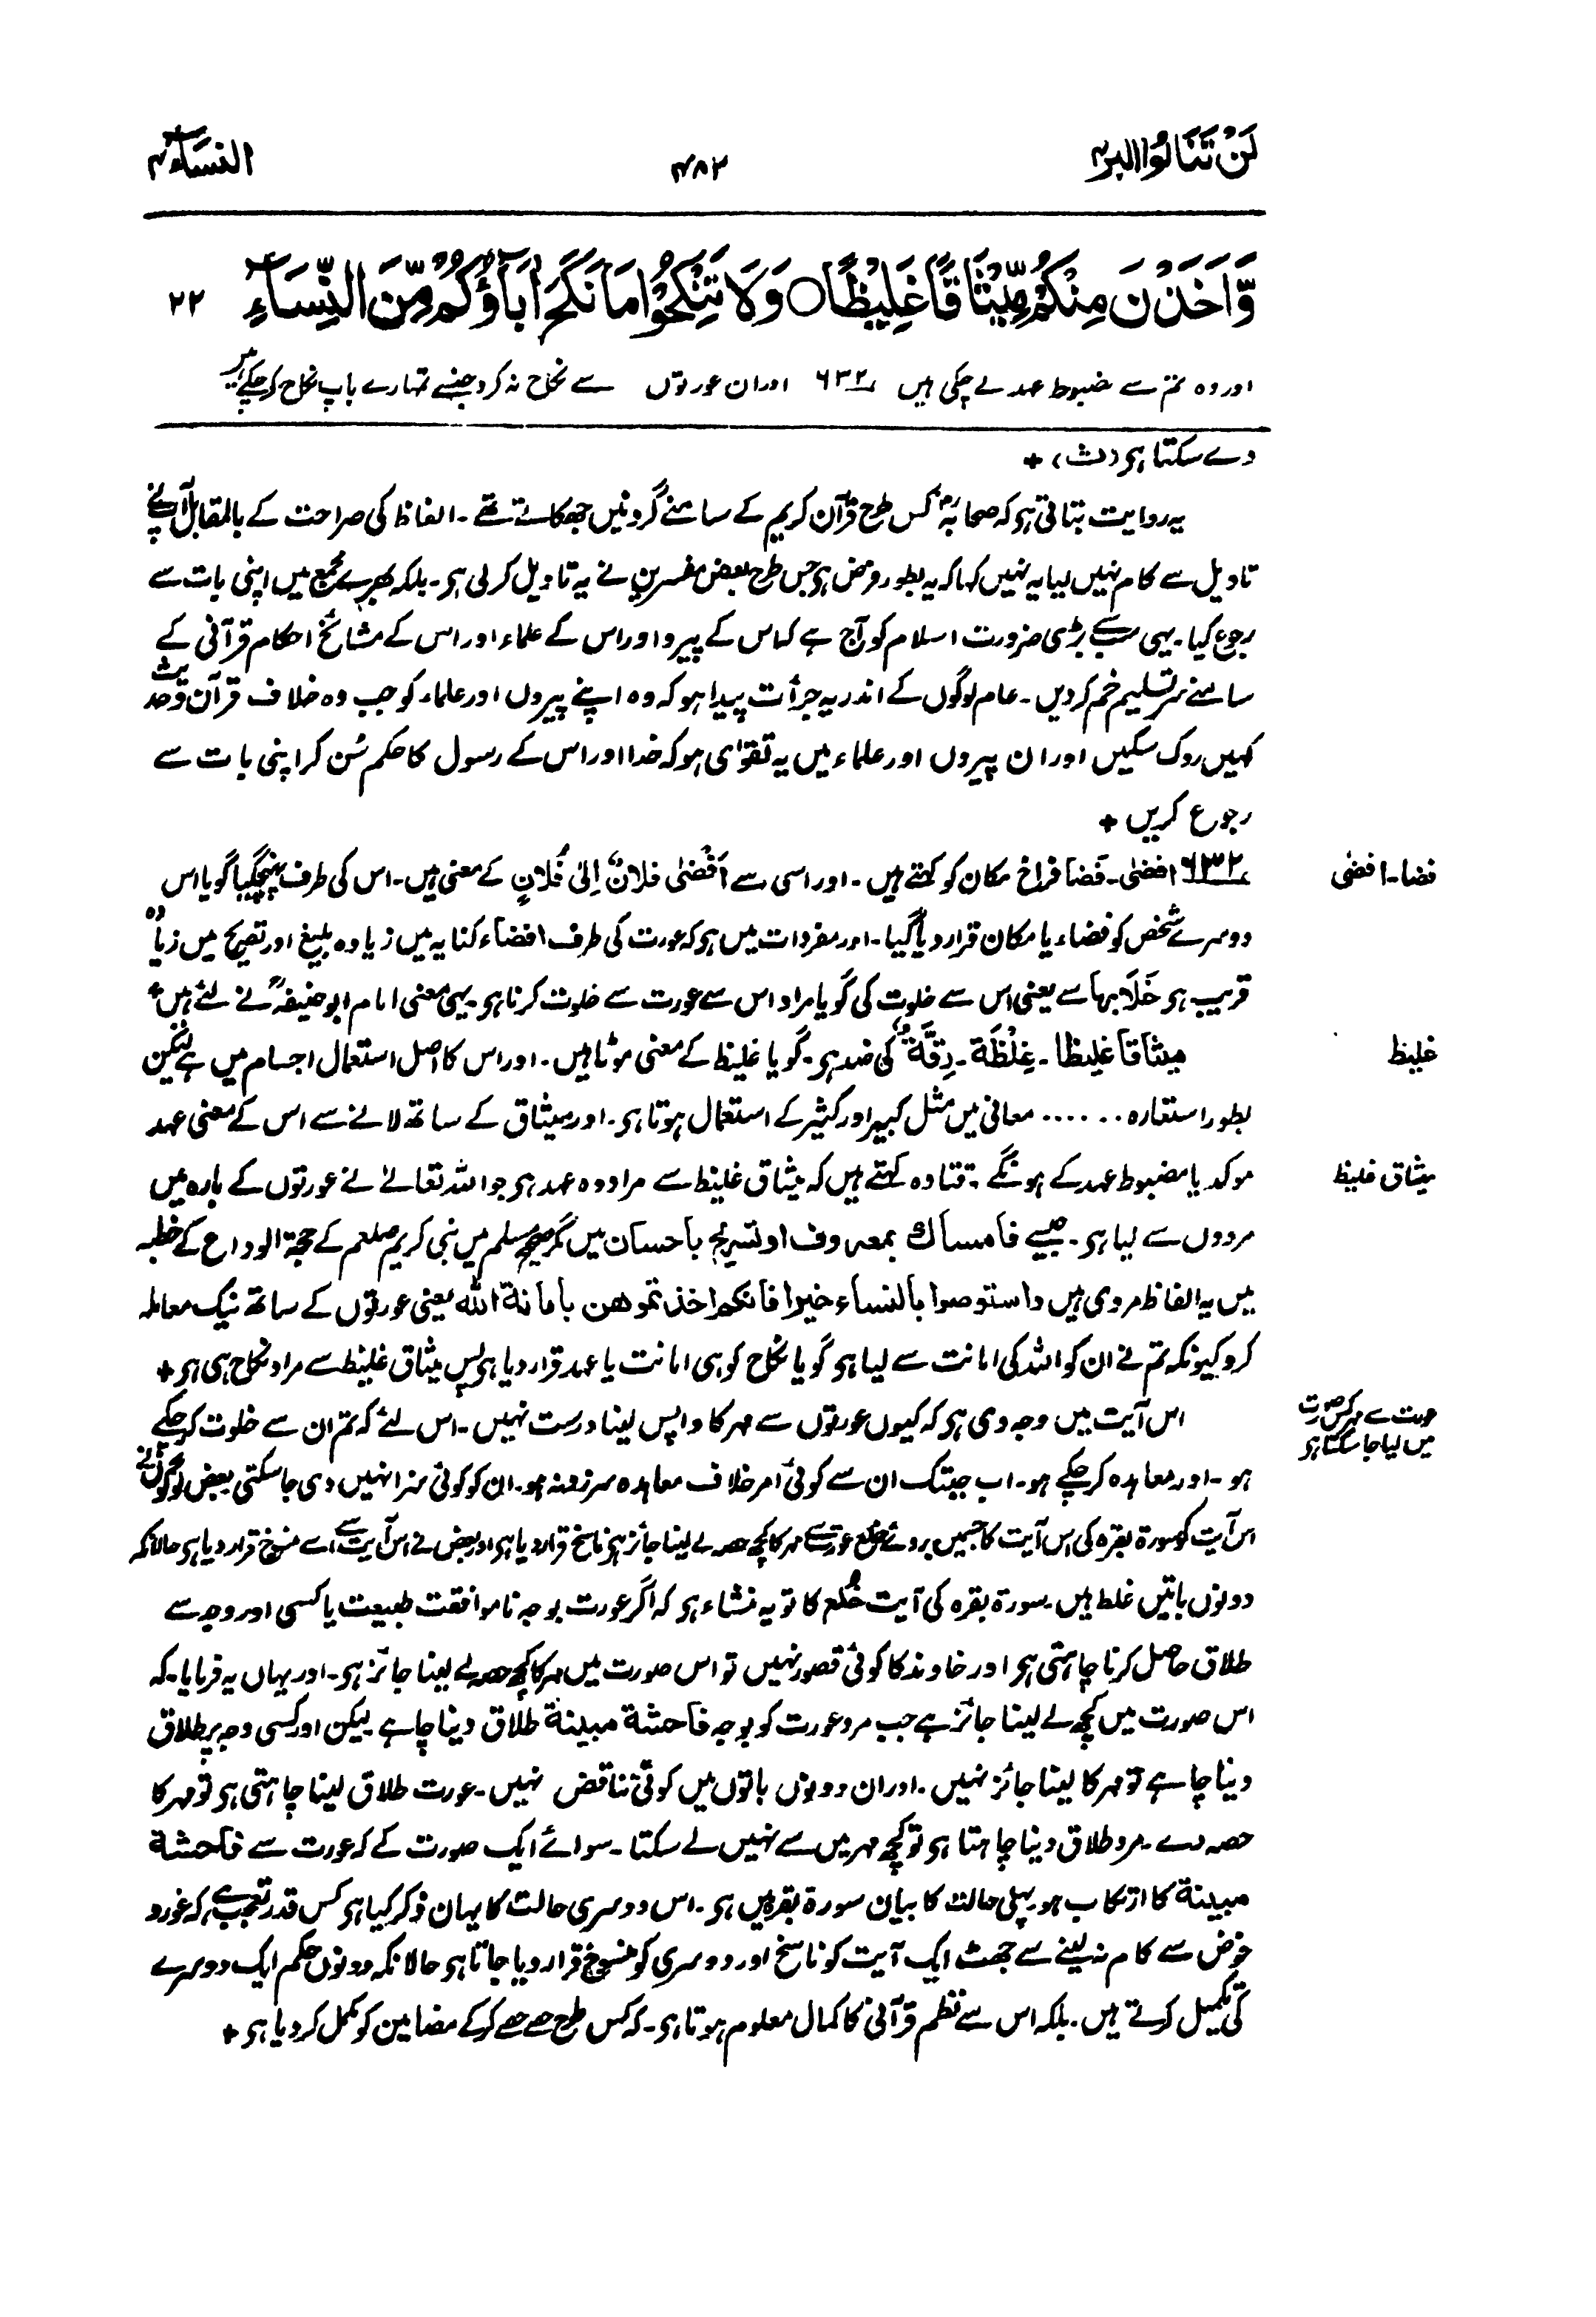 لَنْ تَنَالُوا البر ۴
۴۸۲
النساء ۴
وَّاَخَذْنَ مِنْكُمْ مِّيْثَاقًا غَلِيْظًا ○ وَلَا تَنْكِحُوْا مَا نَكَحَ اٰبَآؤُكُمْ مِّنَ النِّسَآءِ ۲۲
اور وہ تم سے مضبوط عہد لے چکی ہیں ۶۳۲ اور ان عورتوں سے نکاح نہ کرو جنسے تمہارے باپ نکاح کرچکے ہیں
دے سکتا ہو (ث) +
یہ روایت بتاتی ہو کہ صحابہؓ کس طرح قرآن کریم کے سامنے گردنیں جھکاتے تھے ۔ الفاظ کی صراحت کے بالمقابل آپنے
تاویل سے کام نہیں لیا یہ نہیں کہا کہ یہ بطور فرض ہو جس طرح بعض مفسرین نے یہ تاویل کرلی ہو ۔ بلکہ بھرے مجمع میں اپنی بات سے
رجوع کیا ۔ یہی سب سے بڑی ضرورت اسلام کو آج ہے کہ اس کے پیرو اور اس کے علماء اور اس کے مشائخ احکام قرآنی کے
سامنے سر تسلیم خم کردیں ۔ عام لوگوں کے اندر یہ جرأت پیدا ہو کہ وہ اپنے پیروں اور علماء کو جب وہ خلاف قرآن وحدیث
کہیں روک سکیں اور ان پیروں اور علماء میں یہ تقوٰی ہو کہ خدا اور اس کے رسول کا حکم سُن کر اپنی بات سے
رجوع کریں +
فضا ۔ افضٰی
۶۳۲ افضٰی ۔ فَضَا فراخ مکان کو کہتے ہیں ۔ اور اسی سے اَفْضٰی فلانٌ اِلٰی فُلانٍ کے معنی ہیں ۔ اس کی طرف پہنچ گیا گویا اس
دوسرے شخص کو فضاء یا مکان قرار دیا گیا ۔ اور مفردات میں ہو کہ عورت کی طرف افضاء کنایہ میں زیادہ بلیغ اور تصریح میں زیادہ
قریب ہو خَلَا بھا سے یعنی اس سے خلوت کی گویا مراد اس سے عورت سے خلوت کرنا ہو یہی معنی امام ابوحنیفہؒ نے لئے ہیں +
غلیظ
میثاقا غلیظا ۔ غِلْظَة ۔ دِقَّةٌ کی ضد ہو ۔ گویا غلیظ کے معنی موٹا ہیں ۔ اور اس کا اصل استعمال اجسام میں ہے لیکن
بطور استعارہ ...... معانی میں مثل کبیر اور کثیر کے استعمال ہوتا ہو ۔ اور میثاق کے ساتھ لانے سے اس کے معنی عہد
میثاق غلیظ
موکد یا مضبوط عہد کے ہونگے ۔ قتادہ کہتے ہیں کہ میثاق غلیظ سے مراد وہ عہد ہو جو اللہ تعالےٰ نے عورتوں کے بارہ میں
مردوں سے لیا ہو ۔ جیسے فامساك بمعروف او تسریح باحسان میں مگر صحیح مسلم میں نبی کریم صلعم کے حجۃ الوداع کے خطبہ
میں یہ الفاظ مروی ہیں واستوصوا بالنساء خیرا فانکم اخذتموهن بامانة الله یعنی عورتوں کے ساتھ نیک معاملہ
کرو کیونکہ تم نے ان کو اللہ کی امانت سے لیا ہو گویا نکاح کو ہی امانت یا عہد قرار دیا ہو پس میثاق غلیظ سے مراد نکاح ہی ہو +
عورت سے مہر کس صورت
میں لیا جا سکتا ہو
اس آیت میں وجہ دی ہو کہ کیوں عورتوں سے مہر کا واپس لینا درست نہیں ۔ اس لئے کہ تم ان سے خلوت کرچکے
ہو ۔ اور معاہدہ کرچکے ہو ۔ اب جبتک ان سے کوئی امر خلاف معاہدہ سرزد نہ ہو ۔ ان کو کوئی سزا نہیں دی جاسکتی بعض لوگوں نے
اس آیت کو سورۃ بقرہ کی اس آیت کا جسمیں بروئے خلع عورت سے مہر کا کچھ حصہ لے لینا جائز ہو ناسخ قرار دیا ہو اور بعض نے اس آیت سے اسے منسوخ قرار دیا ہو حالانکہ
دونوں باتیں غلط ہیں ۔ سورۃ بقرہ کی آیت خُلع کا تو یہ منشاء ہو کہ اگر عورت بوجہ ناموافقت طبیعت یا کسی اور وجہ سے
طلاق حاصل کرنا چاہتی ہو اور خاوند کا کوئی قصور نہیں تو اس صورت میں مہر کا کچھ حصہ لے لینا جائز ہو ۔ اور یہاں یہ فرمایا ۔ کہ
اس صورت میں کچھ لے لینا جائز ہے جب مرد عورت کو بوجہ فاحشة مبینة طلاق دینا چاہے لیکن اور کسی وجہ پر طلاق
دینا چاہے تو مہر کا لینا جائز نہیں ۔ اور ان دونوں باتوں میں کوئی تناقض نہیں ۔ عورت طلاق لینا چاہتی ہو تو مہر کا
حصہ دے ۔ مرد طلاق دینا چاہتا ہو تو کچھ مہر میں سے نہیں لے سکتا ۔ سوائے ایک صورت کے کہ عورت سے فاحشة
مبینة کا ارتکاب ہو پہلی حالت کا بیان سورۃ بقرہ میں ہو ۔ اس دوسری حالت کا یہاں ذکر کیا ہو کس قدر تعجب ہے کہ غور و
خوض سے کام نہ لینے سے جھٹ ایک آیت کو ناسخ اور دوسری کو منسوخ قرار دیا جاتا ہو حالانکہ دونوں حکم ایک دوسرے
کی تکمیل کرتے ہیں ۔ بلکہ اس سے نظم قرآنی کا کمال معلوم ہوتا ہو ۔ کہ کس طرح حصے حصے کرکے مضامین کو مکمل کردیا ہو +